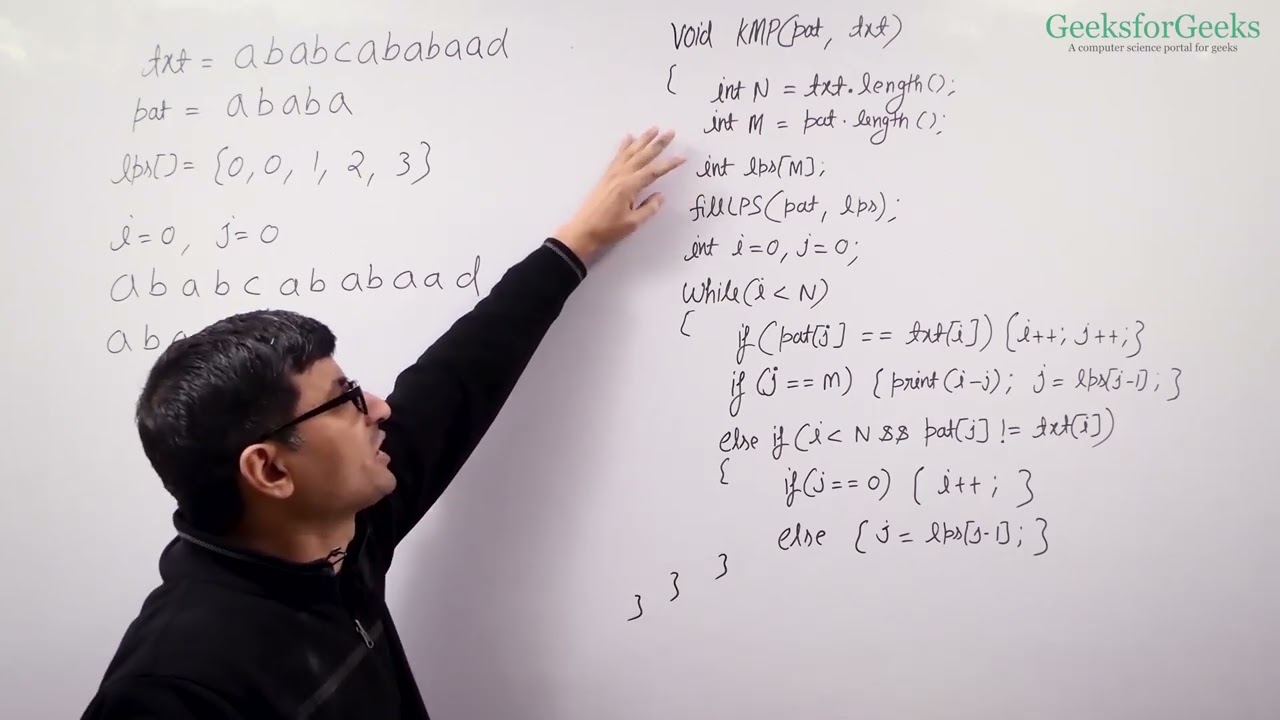 GeeksforGeeks
A computer science portal for geeks
txt = ababcababaad
pat = ababa
lps[] = {0, 0, 1, 2, 3}
i=0, j=0
a b a b c a b a b a a d
a b a
void KMP(pat, txt)
{ int N = txt.length();
int M = pat.length();
int lps[M];
fillLPS(pat, lps);
int i=0, j=0;
while(i < N)
{ if(pat[j] == txt[i]) {i++; j++;}
if(j == M) {print(i-j); j = lps[j-1];}
else if(i < N && pat[j] != txt[i])
{ if(j == 0) { i++; }
else { j = lps[j-1]; }
}
}
}